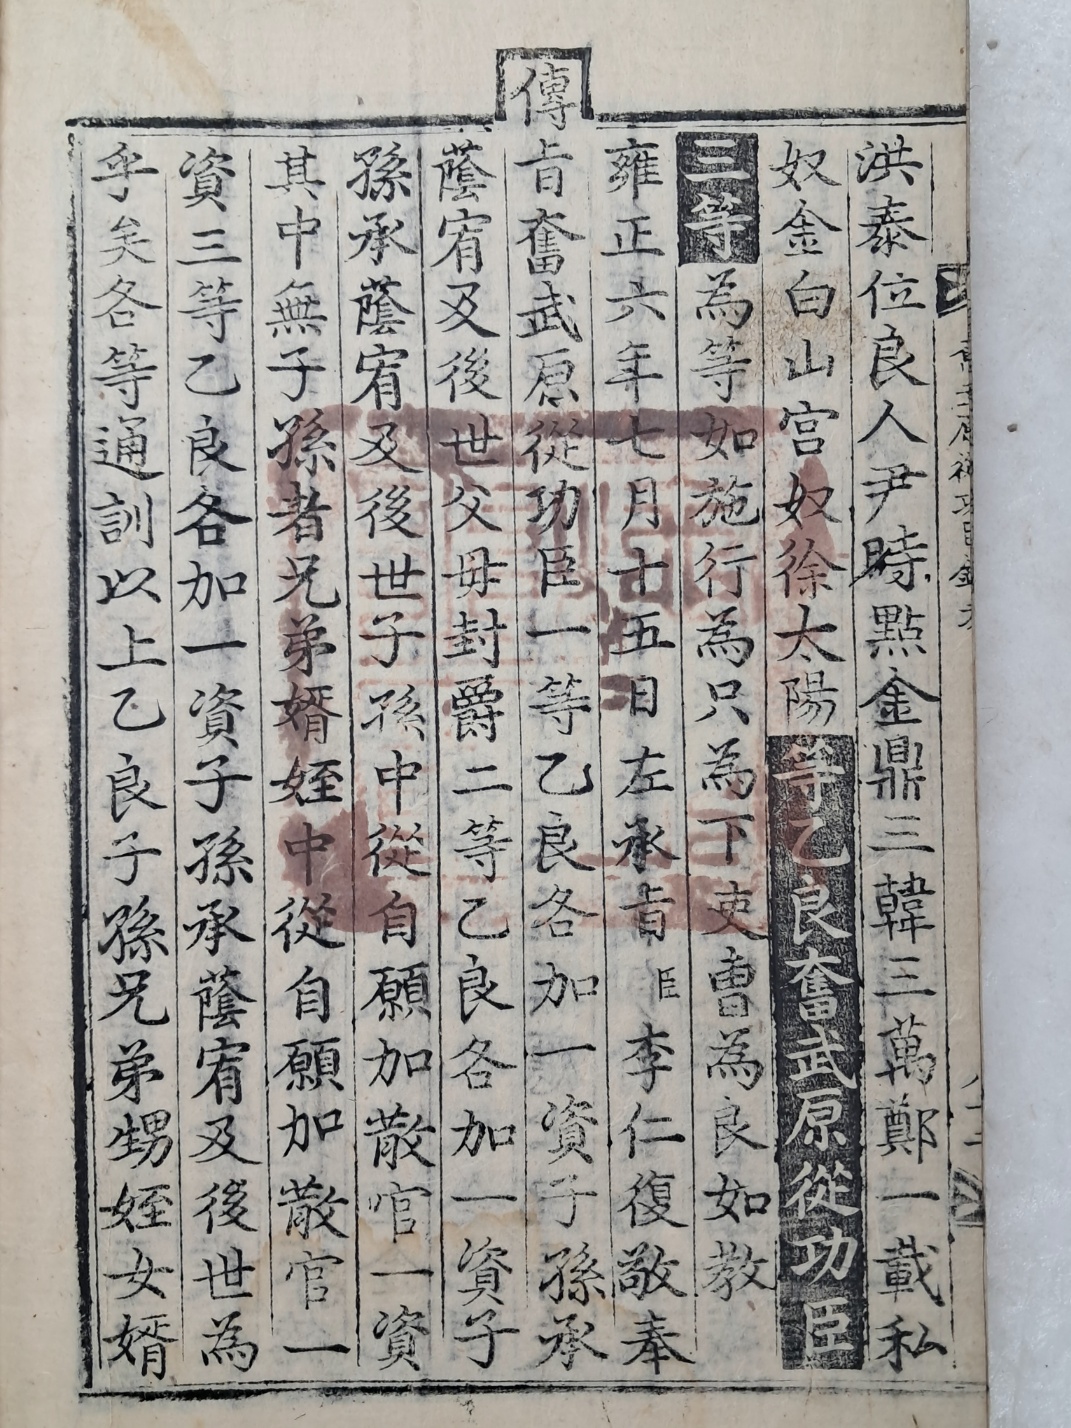 洪泰位良人尹時點金鼎三韓三萬鄭一載私
奴金白山宮奴徐太陽等乙良奮武原從功臣
三等為等如施行為只為下吏曹為良如教
雍正六年七月十五日左承旨臣李仁復敬奉
傳
旨奮武原從功臣一等乙良各加一資子孫承
蔭宥及後世父母封爵二等乙良各加一資子
孫承蔭宥及後世子孫中從自願加散官一資
其中無子孫者兄弟婿姪中從自願加散官一
資三等乙良各加一資子孫承蔭宥及後世為
乎矣各等通訓以上乙良子孫兄弟甥姪女婿